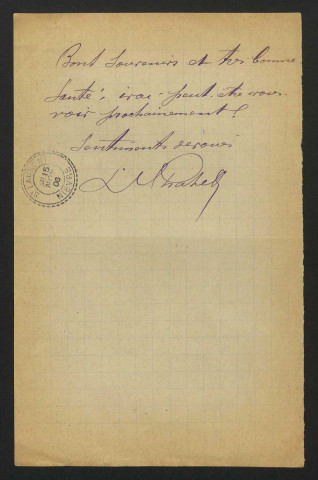 Bons souvenirs et très bonne
santé ; irai-peut être vous
voir prochainement !
Sentiments dévoués